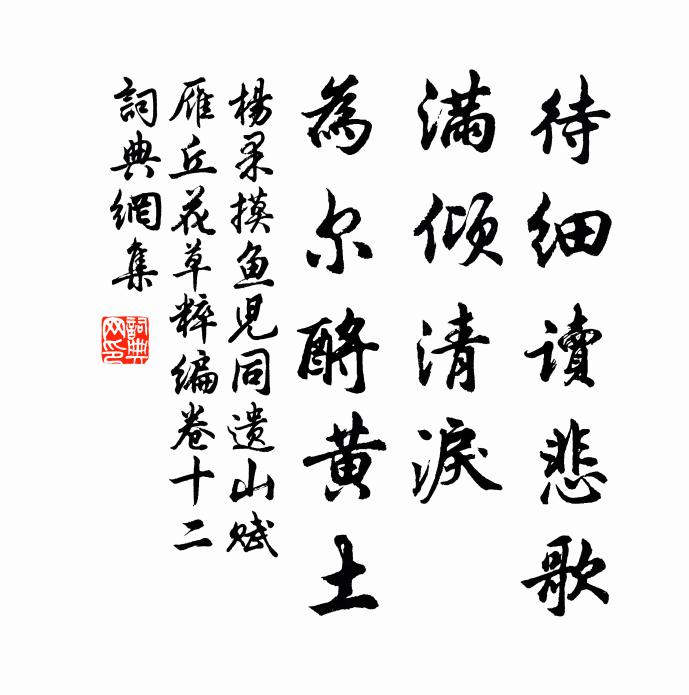 待细讀悲歌
滿倾清淚
為尔酹黄土
楊果摸鱼児同遗山赋
雁丘花草粹编卷十二
詞典網集
詞典
网印